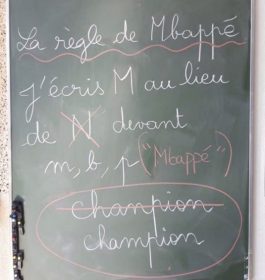 La règle de Mbappé
J'écris M au lieu
de N devant
m, b, p ("Mbappé")
chanpion
champion